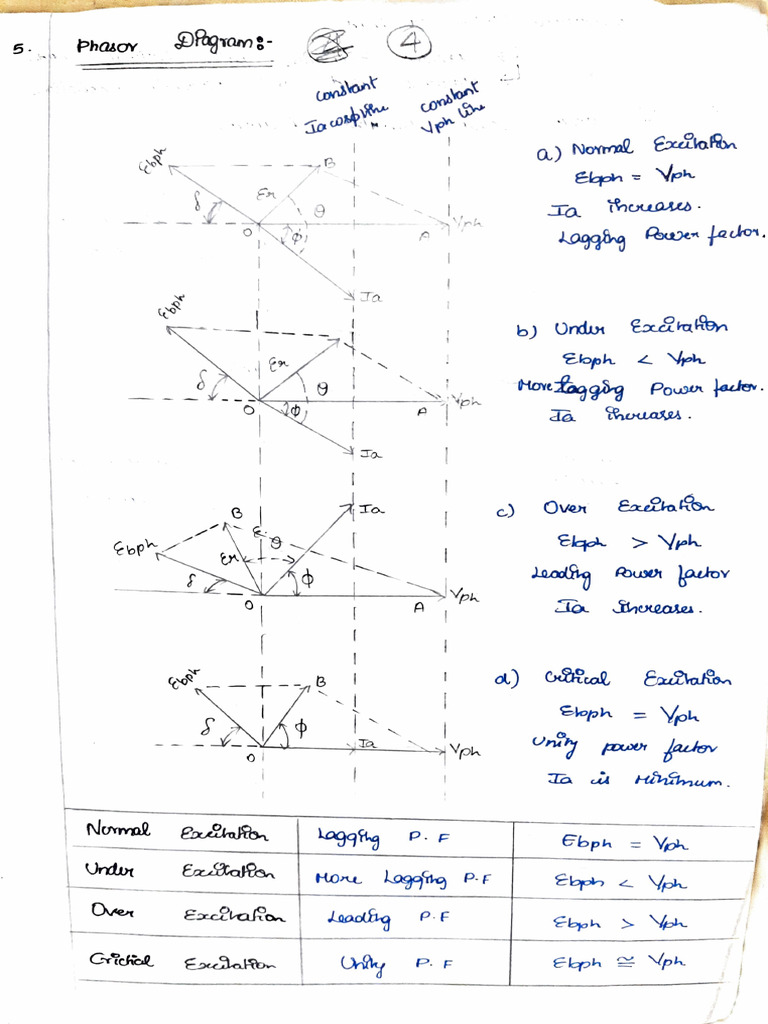 5. Phasor Diagram:- 4
constant
Ia cosφ line
constant
Vph line
Ebph
B
Er
δ
θ
φ
O
A
Vph
Ia
a) Normal Excitation
Ebph = Vph
Ia increases.
Lagging Power factor.
Ebph
Er
δ
θ
φ
O
A
Vph
Ia
b) Under Excitation
Ebph < Vph
More Lagging Power factor.
Ia increases.
Ebph
B
E
θ
Er
Ia
δ
φ
O
A
Vph
c) Over Excitation
Ebph > Vph
Leading Power factor
Ia increases.
Ebph
B
δ
φ
O
Ia
Vph
d) Critical Excitation
Ebph = Vph
Unity power factor
Ia is Minimum.
Normal Excitation Lagging P.F Ebph = Vph
Under Excitation More Lagging P.F Ebph < Vph
Over Excitation Leading P.F Ebph > Vph
Critical Excitation Unity P.F Ebph ≅ Vph